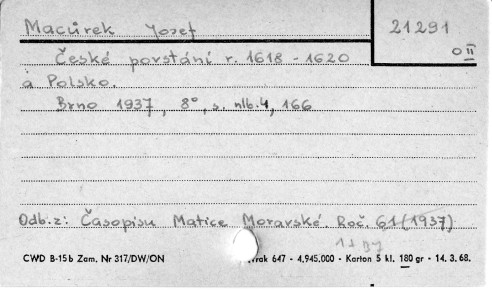 Macůrek Jozef
21291
O II
České povstání r. 1618 - 1620
a Polsko.
Brno 1937, 8°, s. nlb. 4, 166
Odb. z: Časopisu Matice Moravské. Roč. 61 (1937)
CWD B-15b Zam. Nr 317/DW/ON Trak 647 - 4,945.000 - Karton 5 kl. 180 gr - 14. 3. 68.